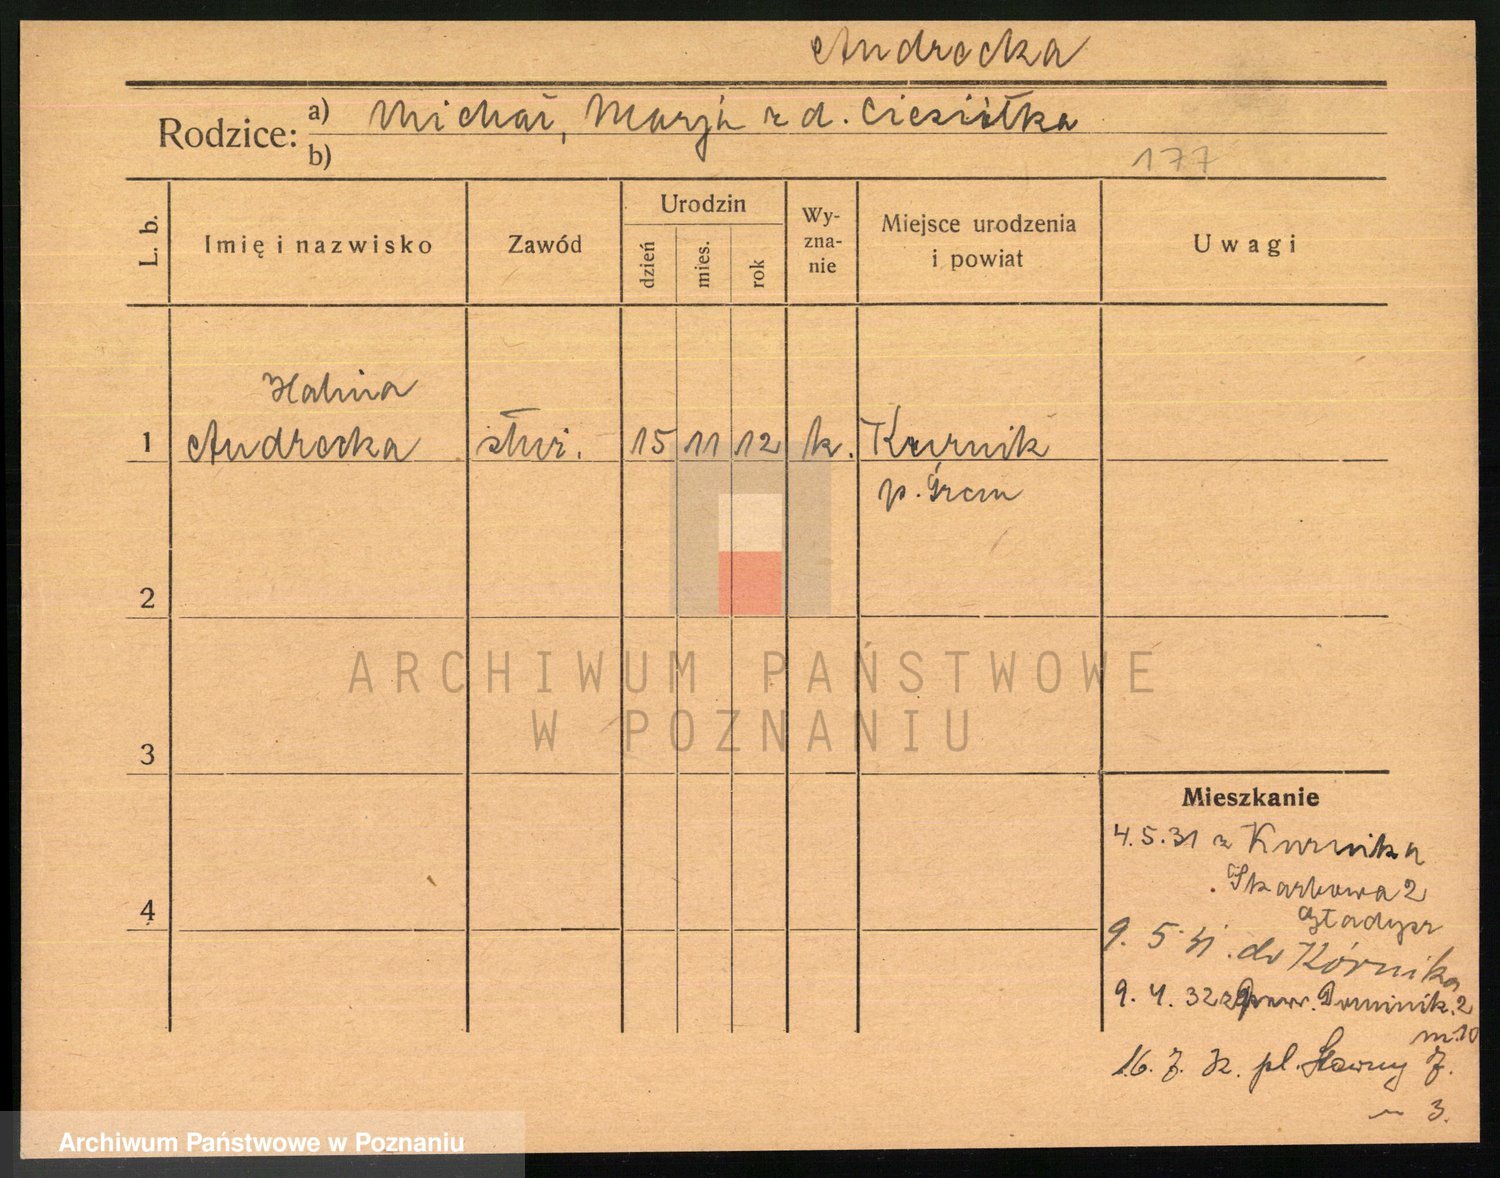 Andrecka
Rodzice: a) Michał, Marja z d. Ciesiółka
b)
177
L. b. Imię i nazwisko Zawód Urodzin dzień mies. rok Wy-zna-nie Miejsce urodzenia i powiat Uwagi
Halina
1 Andrecka służ. 15 11 12 k. Kurnik
p. Śrem
2
3
4
Mieszkanie
4.5.31 z Kurnika
Skarbowa 2
Gładysz
9. 5 31. do Kórnika
9. 4. 32 Dominik. 2
m. 10
16. 7. 32. pl. Sławny 7.
m 3.
ARCHIWUM PAŃSTWOWE
W POZNANIU
Archiwum Państwowe w Poznaniu